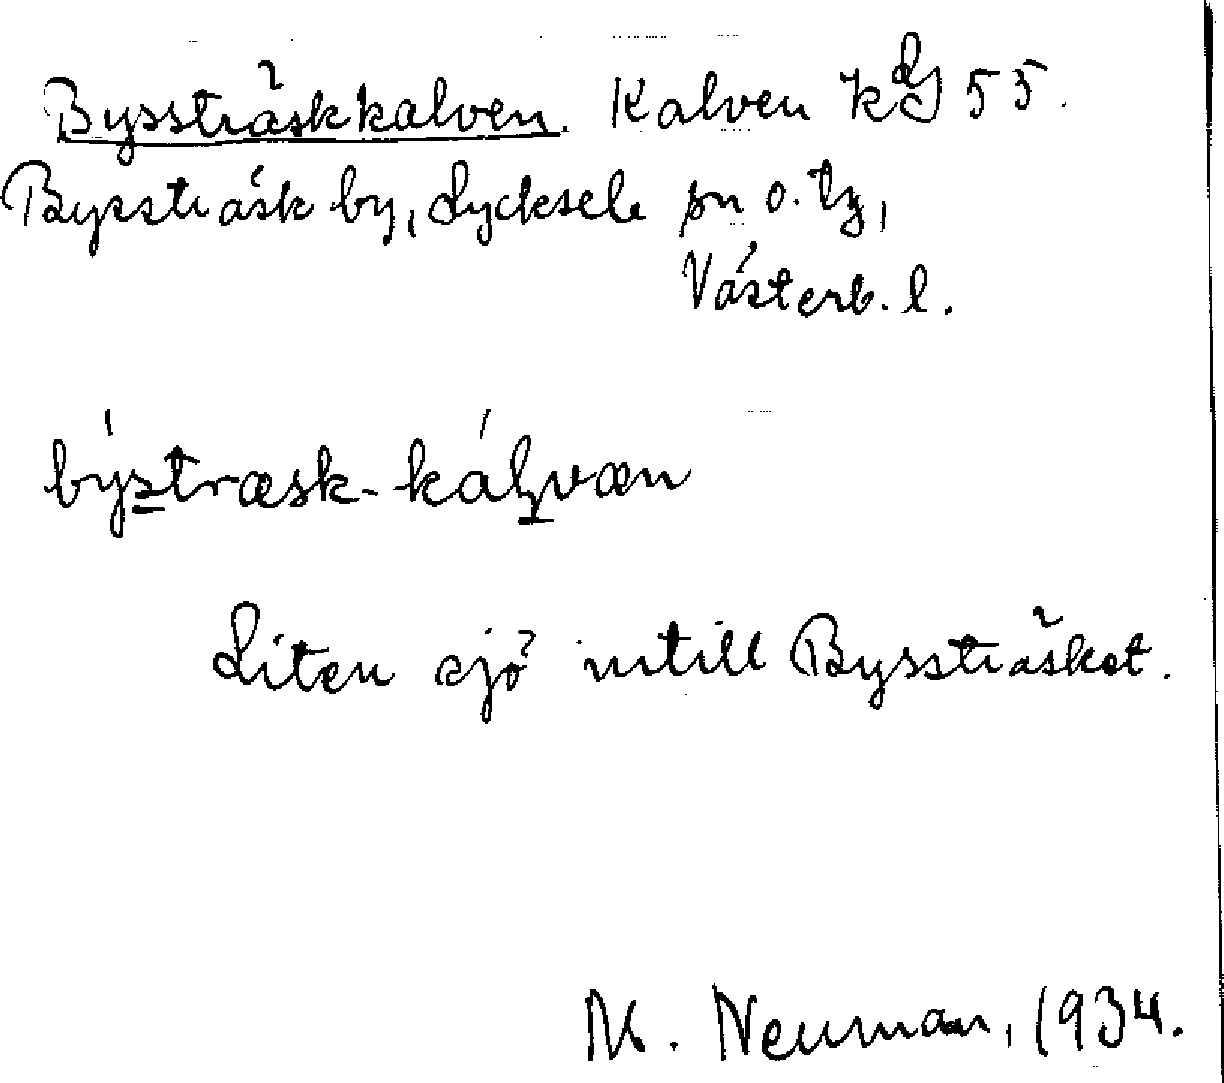 Bysstråskkalven. Kalven kbl 55.
Byssträsk by, Lycksele sn o. tg,
Västerb. l.
by̍stræsk-ká̍lvæn
Liten sjö intill Byssträsket.
M. Neuman, 1934.